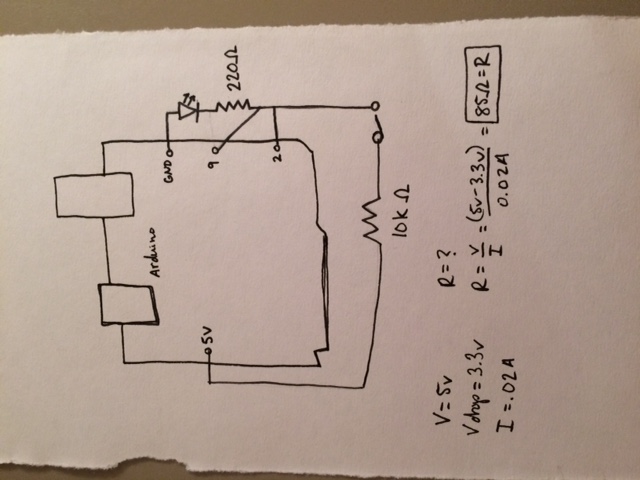 Arduino
GND
5V
9
220Ω
2
10k Ω
V = 5v
R = ?
Vdrop = 3.3v
R = V/I = (5v-3.3v)/0.02A = 85Ω=R
I = .02A